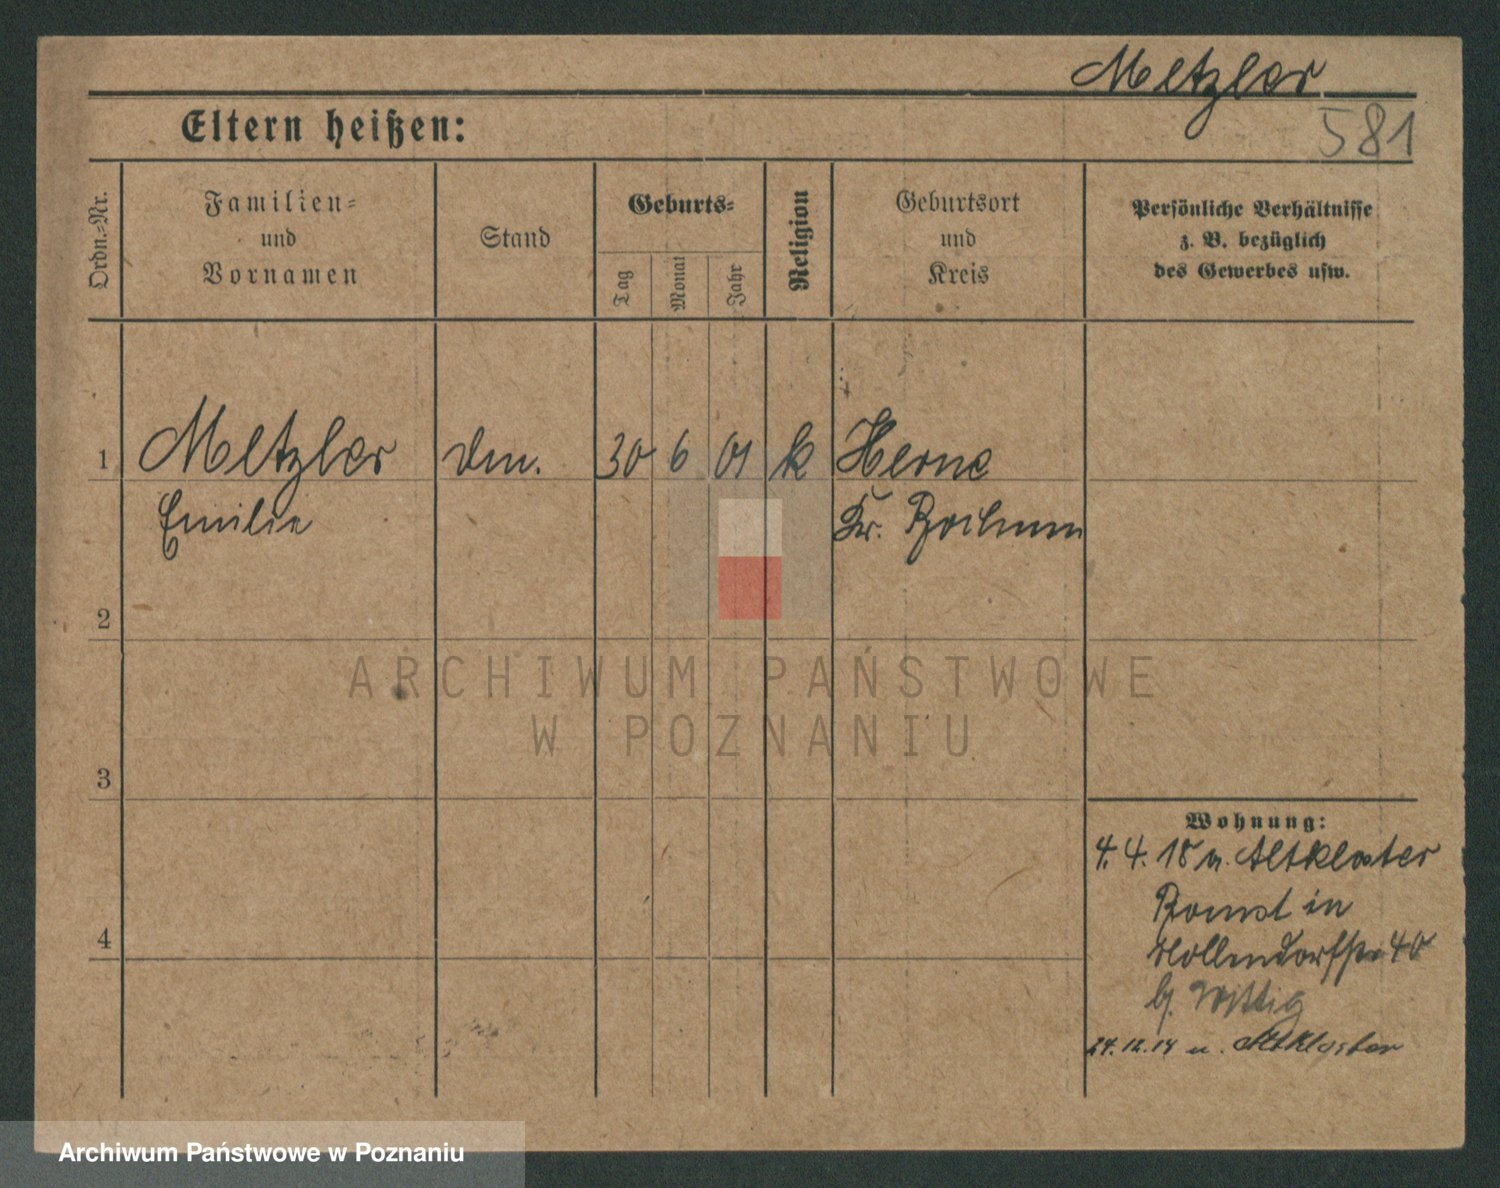 Metzler
581
Eltern heißen:
Ordn.-Nr.
Familien-
und
Vornamen
Stand
Geburts-
Tag
Monat
Jahr
Religion
Geburtsort
und
Kreis
Persönliche Verhältnisse
z. B. bezüglich
des Gewerbes usw.
1 Metzler 30 6 01 k Herne
Emilie Kr. Bochum
2
ARCHIWUM PAŃSTWOWE
W POZNANIU
3
Wohnung:
4.4.18 n. Altkloster
Bomst in
40
4
b/. Wittig
Altkloster
Archiwum Państwowe w Poznaniu